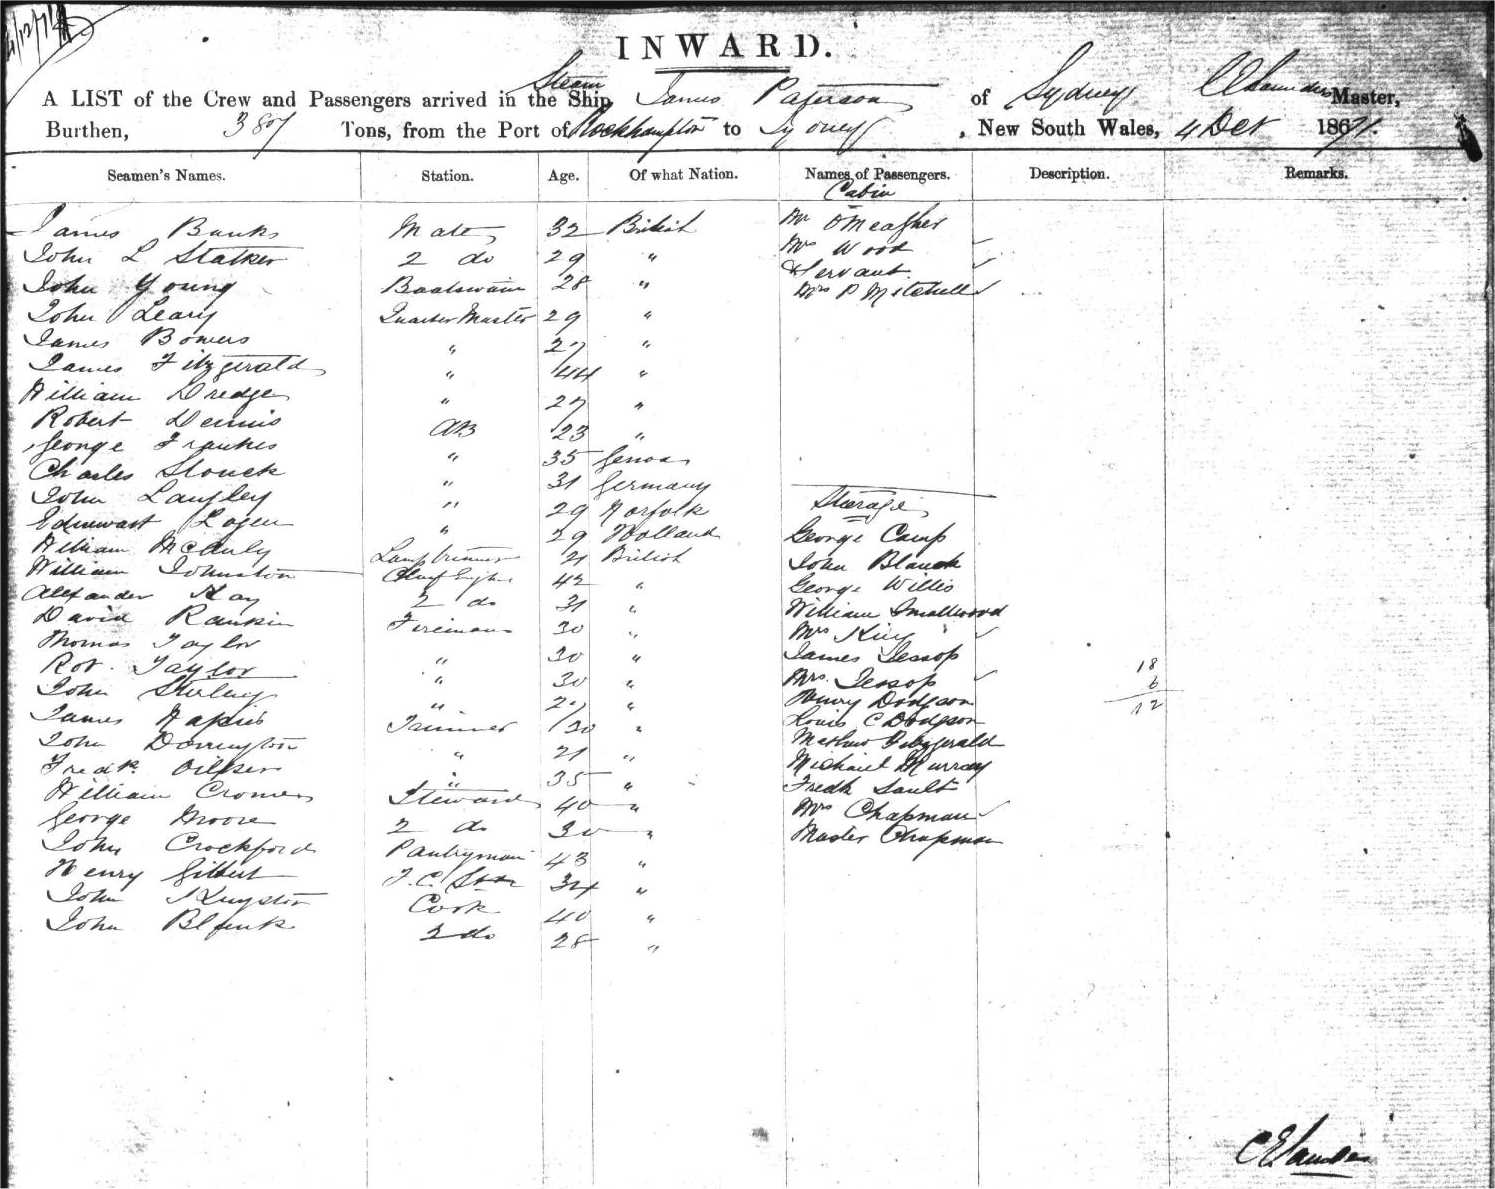 4/12/71
INWARD.
Steam
A LIST of the Crew and Passengers arrived in the Ship James Paterson of Sydney C E Saunders Master,
Burthen, 380 Tons, from the Port of Rockhampton to Sydney, New South Wales, 4 Dec 1871.
Seamen's Names. Station. Age. Of what Nation. Names of Passengers. Description. Remarks.
Cabin
James Banks Mate 32 British Mr OMeagher
John L Stalker 2 do 29 " Mrs Wood
& Servant
John Young Boatswain 28 " Mrs P Mitchell
John Leary Quarter Master 29 "
James Bowers " 27 "
James Fitzgerald " 44 "
William Dredge " 27 "
Robert Dennis AB 23 "
George Frankes " 35 Genoa
Charles Slouck " 31 Germany
John Langley " 29 Norfolk Steerage
Logen " 29 Holland George Camp
William McAuly Lamp trimmer 21 British John Blanch
William Johnston Chief Engr 42 " George Willis
Alexander Kay 2 do 31 " William Smallwood
David Rankin Fireman 30 " Mrs King
Thomas Taylor " 30 " James Jessop 18
Robt. Taylor " 30 " Mrs. Jessop 6
John Stirling " 27 " Henry Dodgson 12
James Napier Trimmer 30 " Louis C Dodgson
John Dorrington " 21 " Mathew Fitzgerald
Fredk. " 35 " Michael Murray
William Cromer Steward 40 " Fredk Sault
George Moore 2 do 30 " Mrs Chapman
John Crockford Pantryman 43 " Master Chapman
Henry Gilbert F.C. Stwd 34 "
John Kingston Cook 40 "
John Blunk 2 do 28 "
C E Saunders